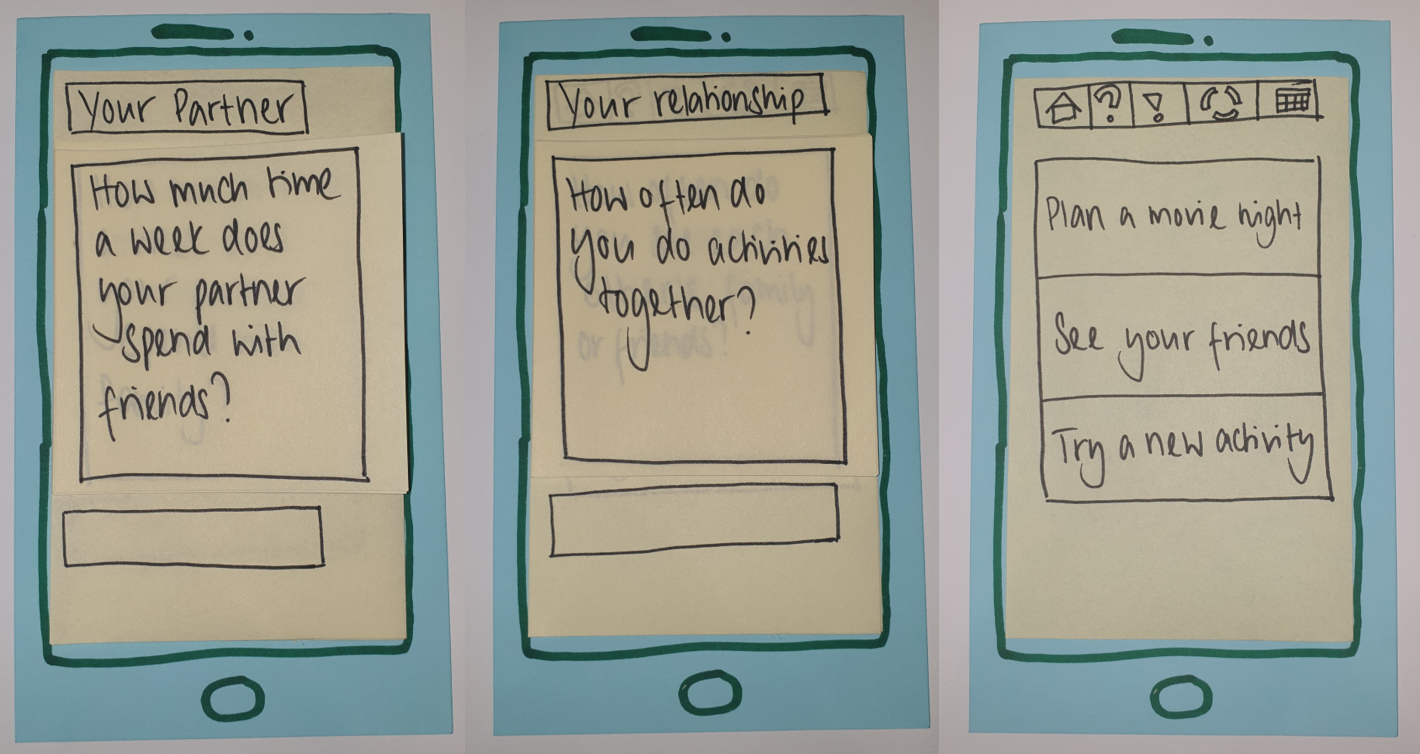 Your Partner
How much time
a week does
your partner
spend with
friends?
Your relationship
How often do
you do activities
together?
or friends?
Plan a movie night
See your friends
Try a new activity